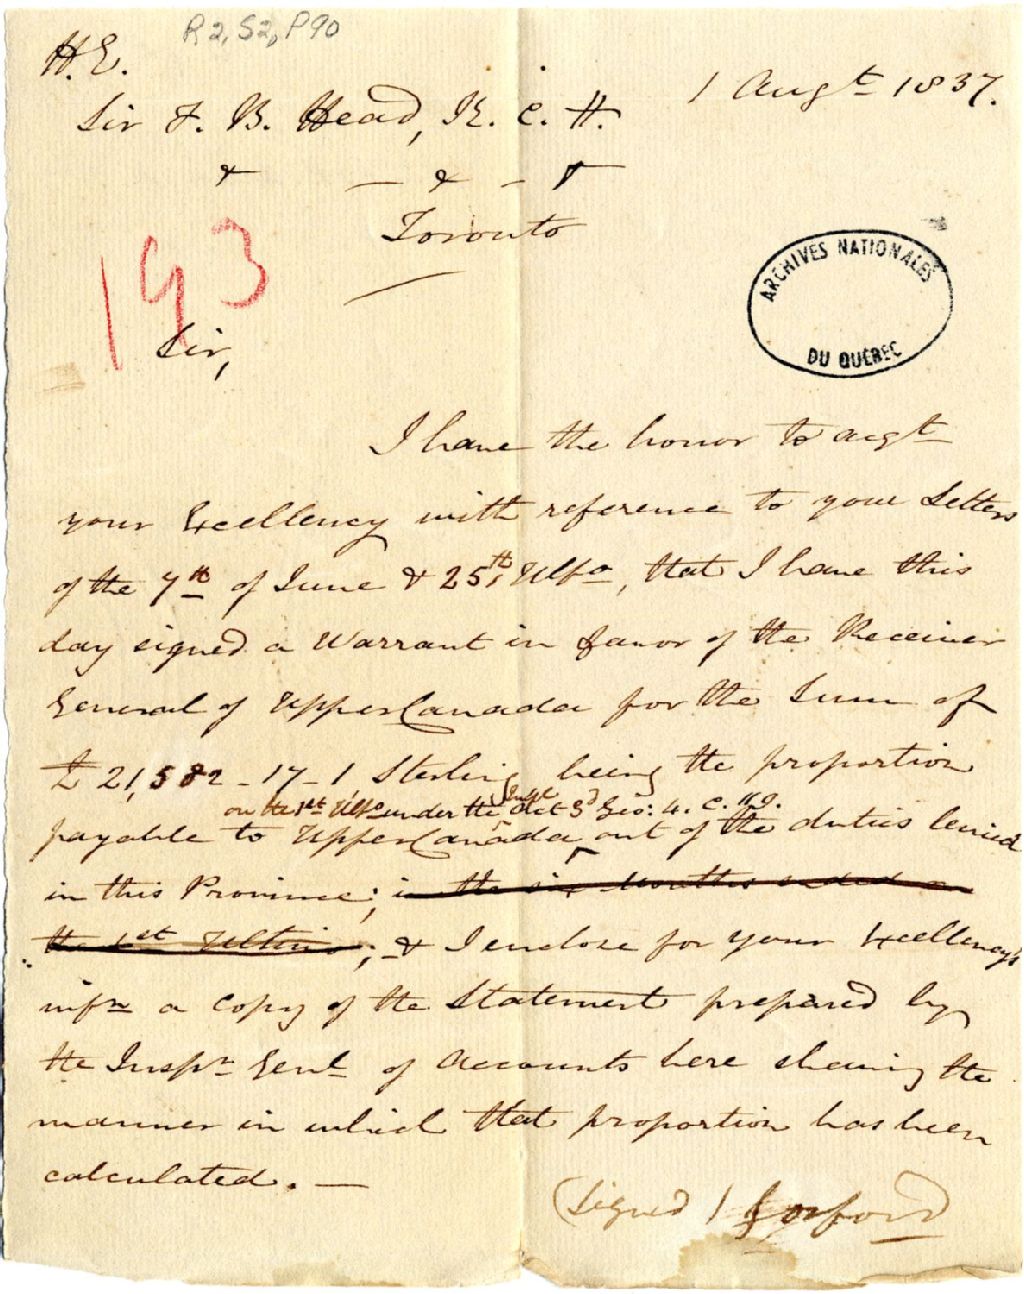 R2, S2, P90
H.E.
1 Augt 1837.
Sir F. B. Head, K. C. H.
& — & — &
Toronto
193
ARCHIVES NATIONALES
DU QUÉBEC
Sir,
I have the honor to acqt
your Excellency with reference to your Letters
of the 7th of June & 25th Ulto, that I have this
day signed a Warrant in favor of the Receiver
General of Upper Canada for the Sum of
£ 21,582 - 17 - 1 Sterling being the proportion
on the 1st Ulto under the Impl Act 3d Geo: 4. C. 119.
payable to Upper Canada out of the duties levied
in this Province; in the six months ended on
the 1st Ultimo; & I enclose for your Excellency's
infn a Copy of the Statement prepared by
the Inspr Genl of Accounts here shewing the
manner in which that proportion has been
calculated. —
(Signed) Gosford